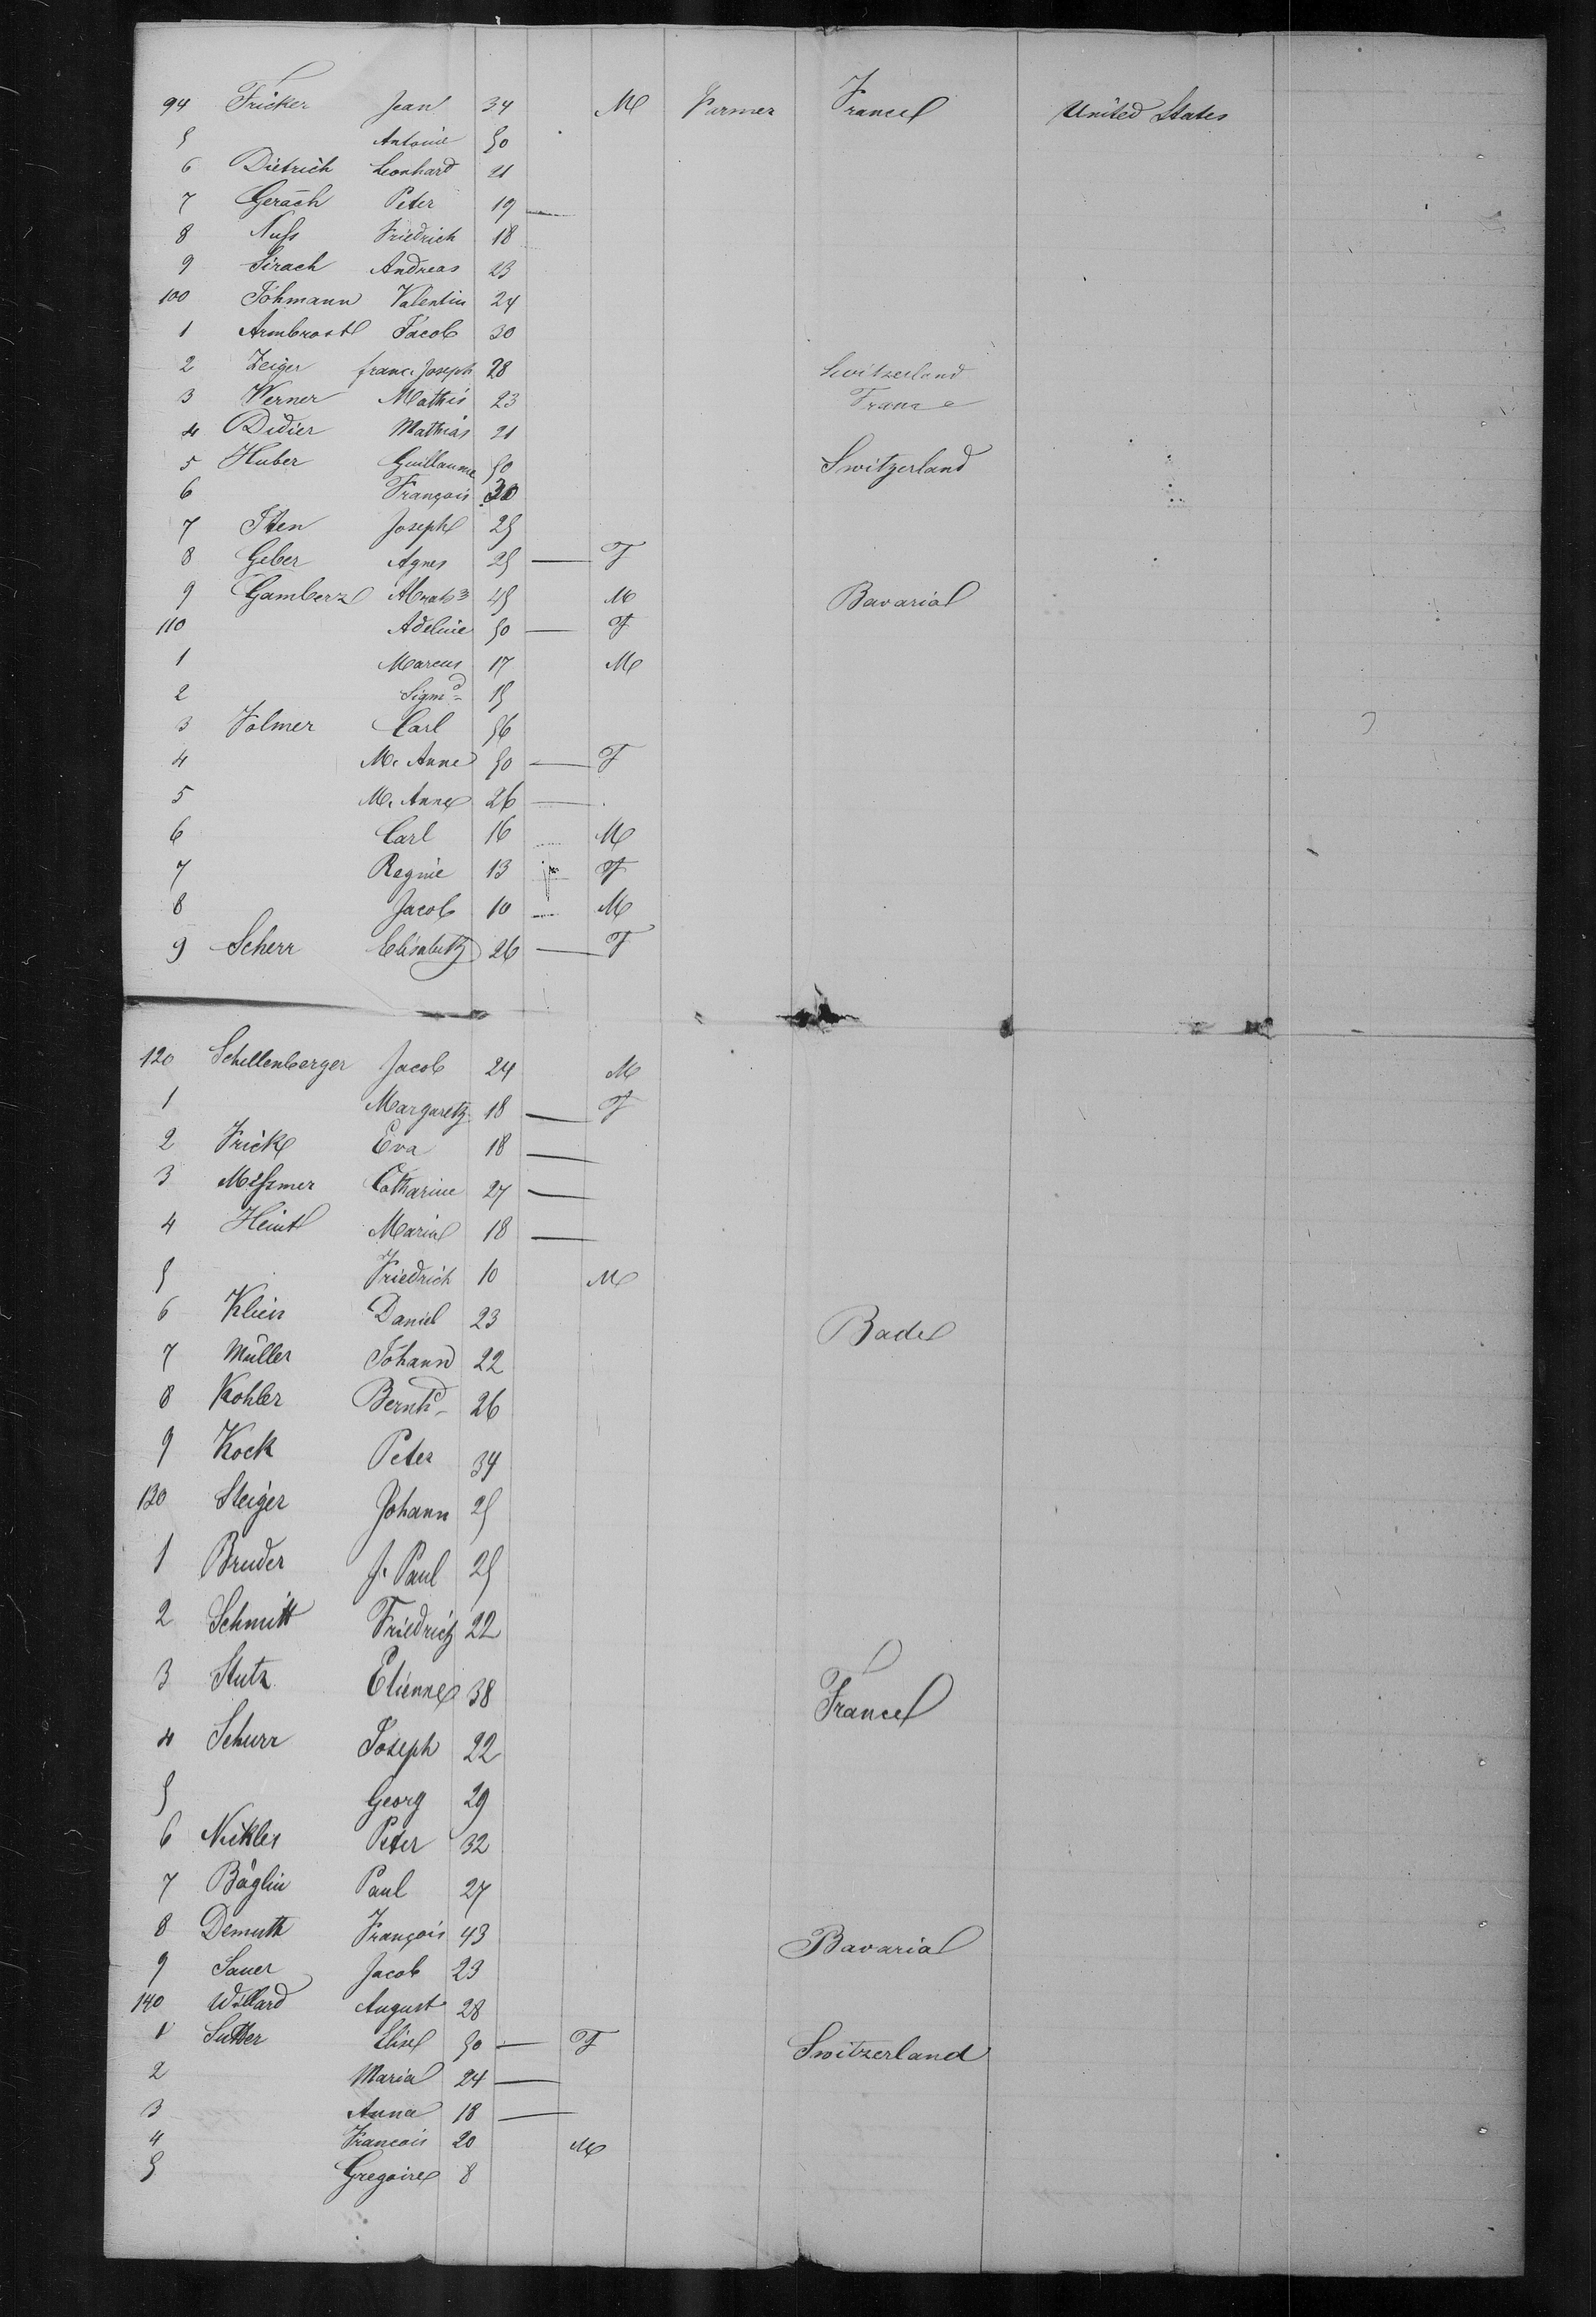 94 Fricker Jean 34 M Farmer France United States
5 Antoine 50
6 Dietrich Leonhard 21
7 Gerach Peter 19
8 Nuſs Friedrich 18
9 Sirach Andreas 23
100 Johmann Valentin 24
1 Armbrost Jacob 30
2 Zeiger franc. Joseph 28 Switzerland
3 Werner Mathis 23 France
4 Didier Mathias 21
5 Huber Guillaume 50 Switzerland
6 François 30
7 Iten Joseph 25
8 Geber Agnes 25 — F
9 Gamberz 45 M Bavaria
110 Adeline 50 — F
1 Marcus 17 M
2 Sigmd 15
3 Volmer Carl 56
4 M. Anne 50 — F
5 M. Anne 26 —
6 Carl 16 M
7 Regine 13 F
8 Jacob 10 — M
9 Scherr Elisabeth 26 — F
120 Schellenberger Jacob 24 M
1 Margareth 18 — F
2 Frick Eva 18 —
3 Miſsmer Catharine 27 —
4 Heint Maria 18 —
5 Friedrich 10 M
6 Klein Daniel 23 Bade
7 Müller Johann 22
8 Kohler Bernhd 26
9 Kock Peter 34
130 Steiger Johann 25
1 Bruder J. Paul 25
2 Schmitt Friedrich 22
3 Stutz Etienne 38 France
4 Schurr Joseph 22
5 Georg 29
6 Nickles Peter 32
7 Bäglin Paul 27
8 Demuth François 43 Bavaria
9 Sauer Jacob 23
140 Willard August 28
1 Sutter Elise 50 — F Switzerland
2 Maria 24 —
3 Anna 18 —
4 Francois 20 M
5 Gregoire 8